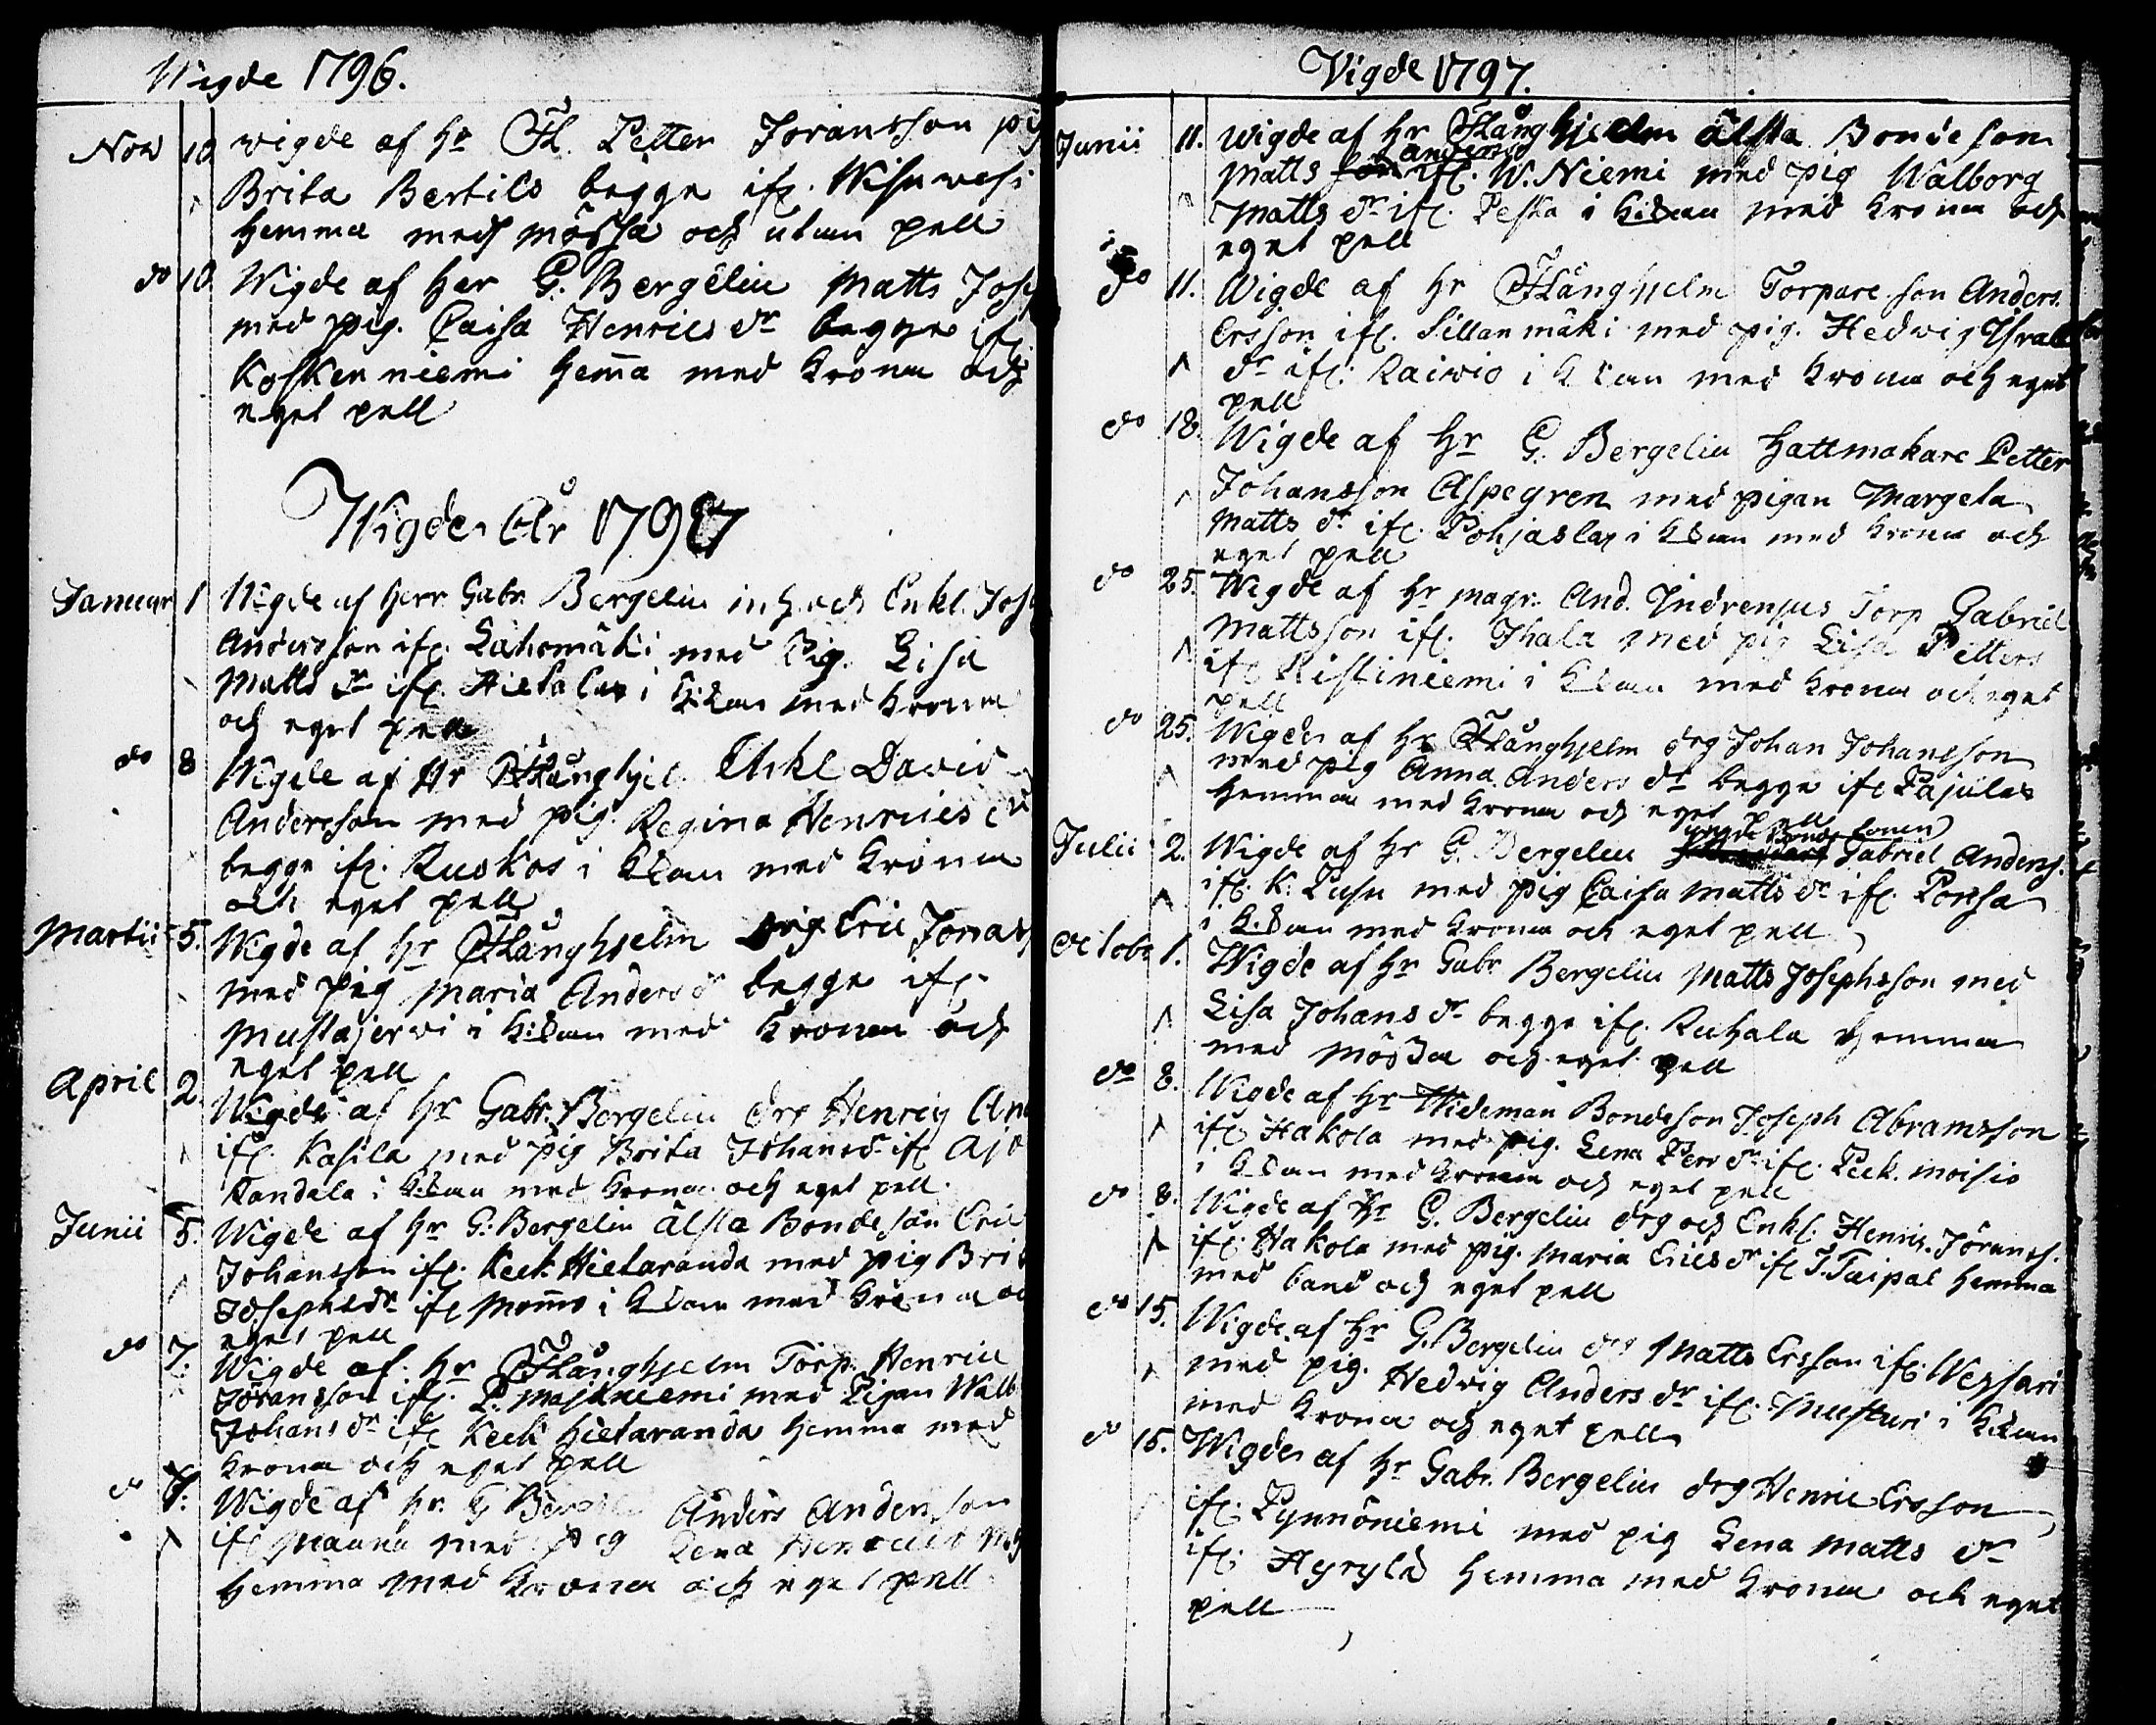 Wigde 1796.
Nov 10 wigde af Hr Fl. Petter Joransson pig
Brita Bertils begge ifr. Wisuwesi
hemma med mössa och utan pell
do 10 Wigde af Her G. Bergelin Matts Josep
med pig. Caisa Henrics dr begge ifr.
Koskenniemi hema med Krona och
eget pell
Wigde År 1797
Januar 1 Wigde af Herr Gabr. Bergelin inh. och Enkl. Jos
Andersson ifr. Lahomäki med Pig. Lisa
Matts dr ifr. Hietalax i K:kan med Krona
och eget pell
do 8 Wigde af Hr Flånghjel. Enkl David
Andersson med pig. Regina Henrics dr
begge ifr. Ruskos i Kkan med Krona
och eget pell
Martii 5. Wigde af Hr Flånghjelm drg Eric Jonas
med pig Maria Anders dr begge ifr.
Mustajerwi i K:kan med Krona och
eget pell
April 2. Wigde af Hr Gabr. Bergelin drg Henric An
ifr. Kasila med pig Brita Johansdr ifr Ajo
Kandala i K:kan med Krona och eget pell.
Junii 5. Wigde af Hr G. Bergelin älsta Bondeson Eric
Johansson ifr. Keck. Hietaranda med pig Brit
Josephsdr ifr Momo i Kkan med Krona oc
eget pell
do 7. Wigde af Hr Flånghjelm Torp. Henric
Joransson ifr. P. Majaniemi med Pigan Walb
Johans dr ifr Keck Hietaranda hemma med
Krona och eget pell
do 7. Wigde af Hr. G Bergelin Anders Andersson
ifr Mauna med pig Lena Henrics
hemma med Krona och eget pell
Vigde 1797.
Junii 11. Wigde af Hr Flånghjelm älsta Bondeson
Anderss
Matts ifr. W. Niemi med pig Walborg
Matts dr ifr. Peska i K:kan med Krona och
eget pell
do 11. Wigde af Hr Flånghjelm Torpare son Anders
Ersson ifr. Sillanmäki med pig. Hedwig Israels
dr ifr. Raiwio i Kkan med Krona och eget
pell
do 18. Wigde af Hr G. Bergelin Hattmakare Petter
Johansson Aspegren med pigan Margeta
Matts dr ifr. Pohjaslax i Kkan med Krona och
eget pell
do 25. Wigde af Hr magr. And. Indrenius Torp Gabriel
Mattsson ifr. Ihala med pig Lisa Petters
ifr Ristiniemi i Kkan med Krona och eget
pell
do 25. Wigde af Hr Flånghjelm drg Johan Johansson
med pig Anna Anders dr begge ifr Pajulax
hemma med Krona och eget pell
yngde Bonde sonen
Julii 2. Wigde af Hr G. Bergelin Gabriel Anderss.
ifr. K. Pusu med pig Caisa Matts dr ifr. Porsa
i K:kan med Krona och eget pell
October 1. Wigde af Hr Gabr Bergelin Matts Josephsson med
Lisa Johans dr begge ifr. Ruhala hemma
med mössa och eget pell
do 8. Wigde af Hr Wideman Bondeson Joseph Abramsson
ifr. Hakola med pig. Lena Pers dr ifr. Peck. moisio
i Kkan med Krona och eget pell
do 8. Wigde af Hr G. Bergelin drg och Enkl. Henric. Jöranss.
ifr. Hakola med pig. Maria Erics dr ifr T. Taipal hemma
med band och eget pell
do 15. Wigde af Hr G. Bergelin drg Matts Ersson ifr. Wessari
med pig. Hedvig Anders dr ifr. Musturi i Kkan
med Krona och eget pell
do 15. Wigde af Hr Gabr. Bergelin drg Henric Ersson
ifr. Pynnöniemi med pig Lena Matts dr
ifr. Hyrylä hemma med Krona och eget
pell